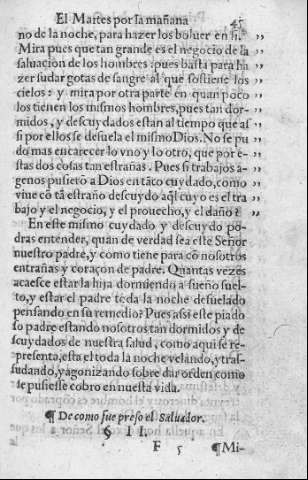 El Martes por la mañana 45
no de la noche, para hazer los boluer en si.
Mira pues que tan grande es el negocio de la
saluacion de los hombres : pues basta para ha
zer sudar gotas de sangre al que sostiene los
cielos : y mira por otra parte en quan poco
los tienen los mismos hombres, pues tan dor-
midos, y descuydados estan al tiempo que as
si por ellos se desuela el mismo Dios. No se pu
do mas encarecer lo vno y lo otro, que por e-
stas dos cosas tan estrañas. Pues si trabajos a-
genos pusierõ a Dios en tãto cuydado, como
viue cõ tã estraño descuydo aq̃l cuyo es el tra
bajo y el negocio, y el prouecho, y el daño?
En este mismo cuydado y descuydo po-
dras entender, quan de verdad sea este Señor
nuestro padre, y como tiene para cõ nosotros
entrañas y coraçon de padre. Quantas vezes
acaesce estar la hija durmiendo a sueño suel-
to, y estar el padre toda la noche desuelado
pensando en su remedio? Pues assi este piado
so padre estando nosotros tan dormidos y de
scuydados de nuestra salud, como aqui se re-
presenta, esta el toda la noche velando, y tras-
sudando, y agonizando sobre dar orden como
se pusiesse cobro en nuesta vida.
¶ De como fue preso el Saluador.
§ II.
F 5 ¶ Mi-